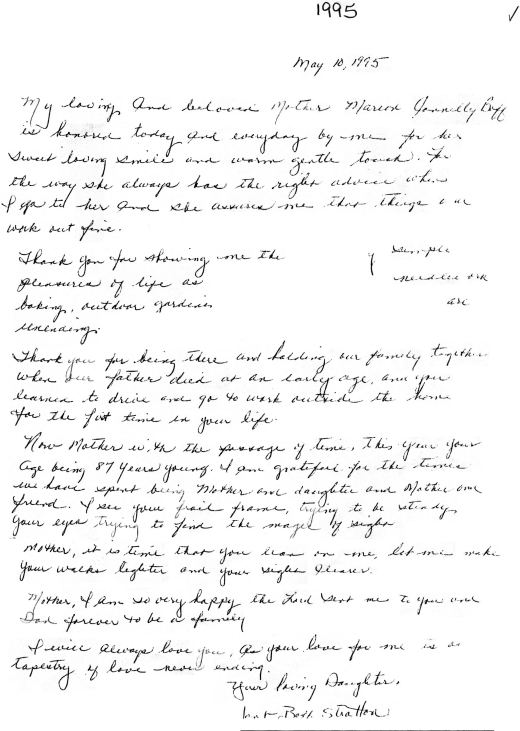 1995
May 10, 1995
My loving and beloved Mother Marion Connelly
is honored today and everyday by me for her
sweet loving smile and warm gentle touch. For
the way she always has the right advice when
I go to her and she assures me that things
work out fine.
Thank you for showing me the
pleasures of life as
baking, outdoor gardens
unending.
simple
needlework
are
Thank you for being there and holding our family together
when our father died at an early age, and you
learned to drive and go to work outside the home
for the first time in your life.
Now Mother with the passage of time, this year your
age being 87 years young. I am grateful for the times
we have spent being Mother and daughter and Mother and
friend. I see your frail frame, trying to be steady
your eyes trying to find the of sight
Mother, it is time that you lean on me, let me make
your walks lighter and your sights clearer.
Mother, I am so very happy the Lord sent me to you and
Dad forever to be a family
I will always love you, as your love for me is a
tapestry of love never ending.
Your loving Daughter,
Stratton